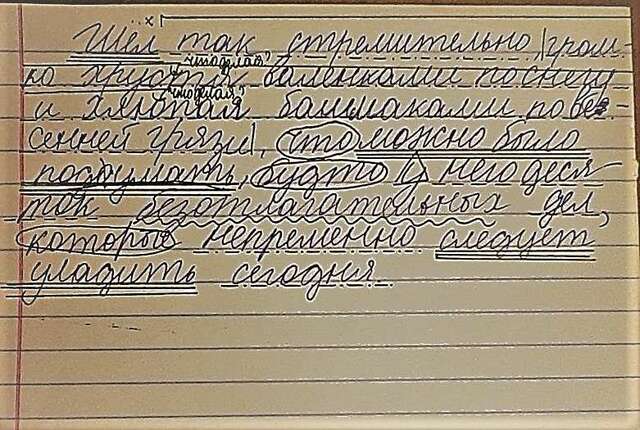 х
Шёл так стремительно, |гром-
что делая?
ко хрустя валенками по снегу
что делая?
и хлюпая башмаками по ве-
сенней грязи|, что можно было
подумать, будто у него деся-
ток безотлагательных дел,
которые непременно следует
уладить сегодня.